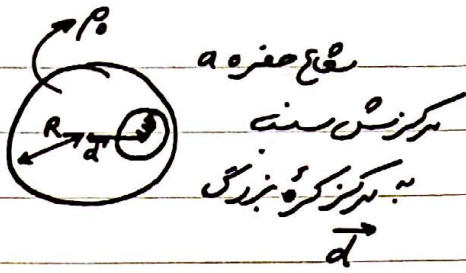 ρ₀
شعاع حفره a
R
d
مرکزش نسبت
به مرکز کرهٔ بزرگ
d⃗